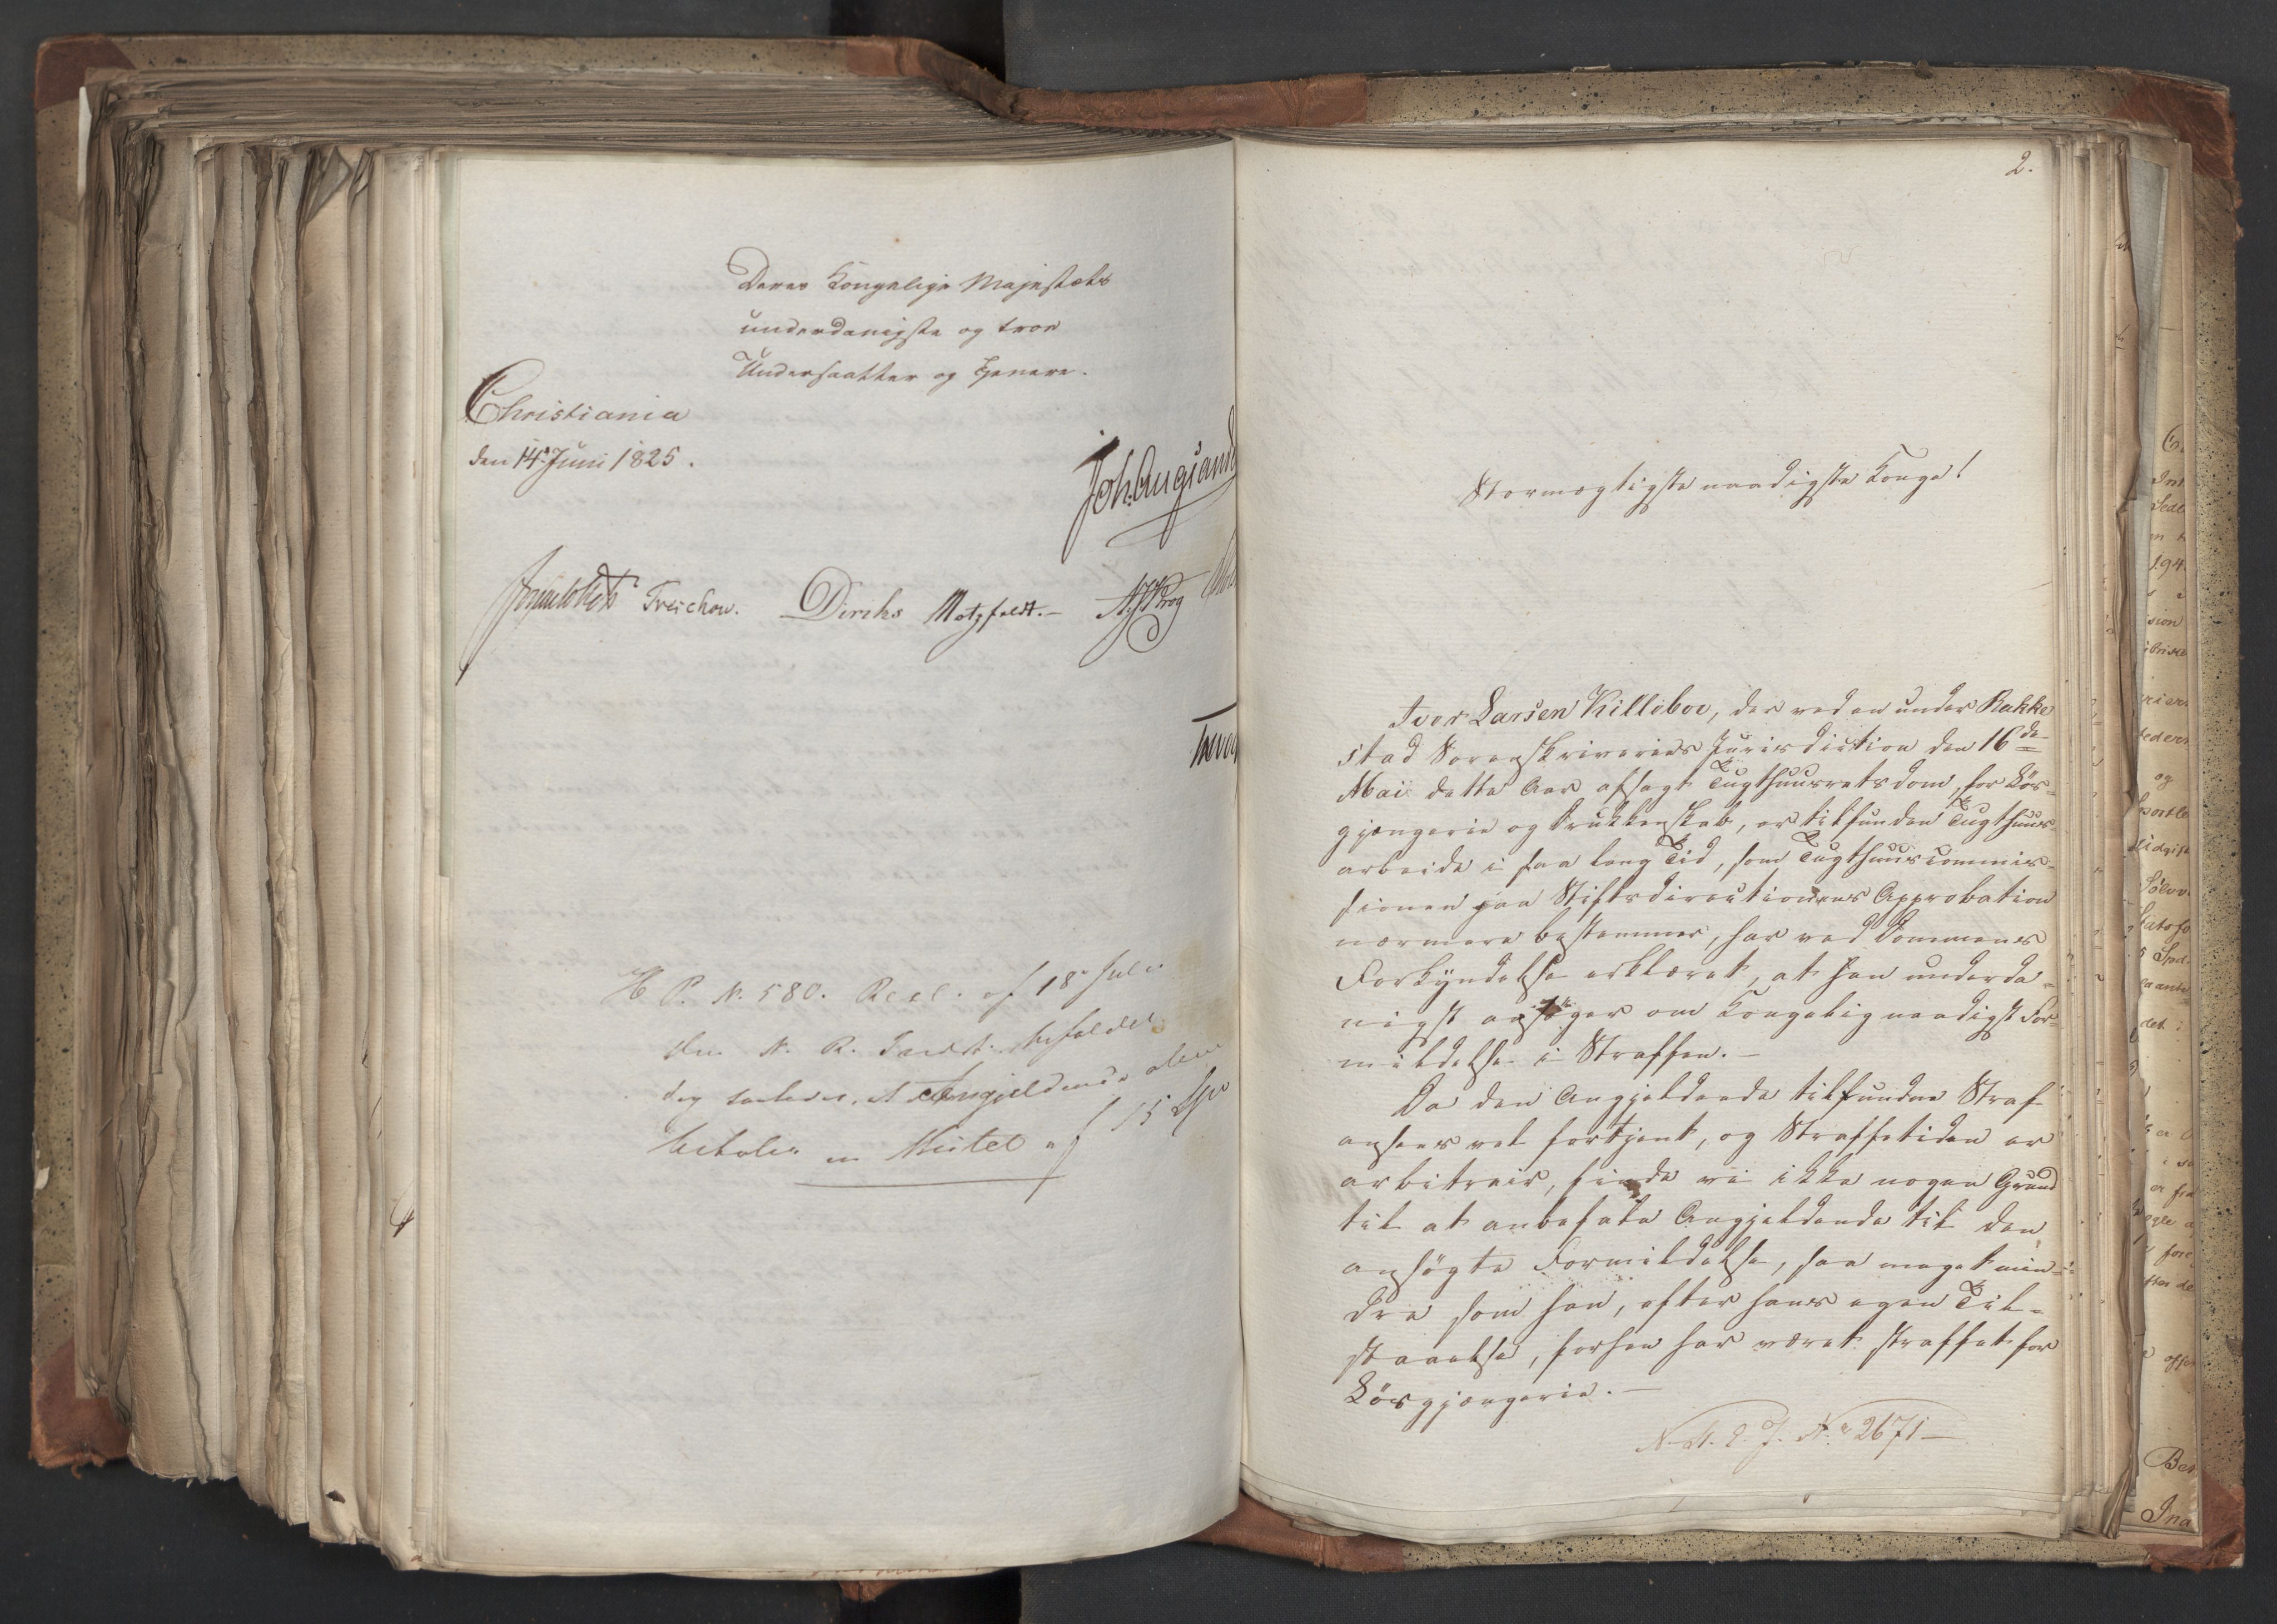 Deres Kongelige Majestæts
underdanigste og troe
Undersaatter og Tjenere.
Christiania
den 14de Juni 1825.
Joh. Aug. Sand
Treschow. Diriks Motzfeldt.— Krog
H P. N. 580. Resl. af 18 Juli
N. R. befaldet
dig saaledes, at Angjeldende alene
betaler en Mulct af 15 Spd
2.
Stormægtigste naadigste Konge!
Iver Larsen Killeboe, der ved en under Rakke
stad Sorenskriveries Jurisdiction den 16de
Maii dette Aar afsagt Tugthuusretsdom, for Løs-
gjængerie og Drukkenskab, er tilfunden Tugthuus-
arbeide i saa lang Tid, som Tugthuuscommis-
sionen paa Stiftsdirectionens Approbation
nærmere bestemmer, har ved Dommens
Forkyndelse erklæret, at han underda-
nigst ansøger om Kongelig naadigst For-
mildelse i Straffen.—
Da den Angjeldende tilfundne Straf
ansees vel fortjent, og Straffetiden er
arbitrair, finde vi ikke nogen Grund
til at anbefale Angjeldende til den
ansøgte Formildelse, saa meget min-
dre som han, efter hans egen Til-
staaelse, forhen har været straffet for
Løsgjængerie.—
N. 2671—